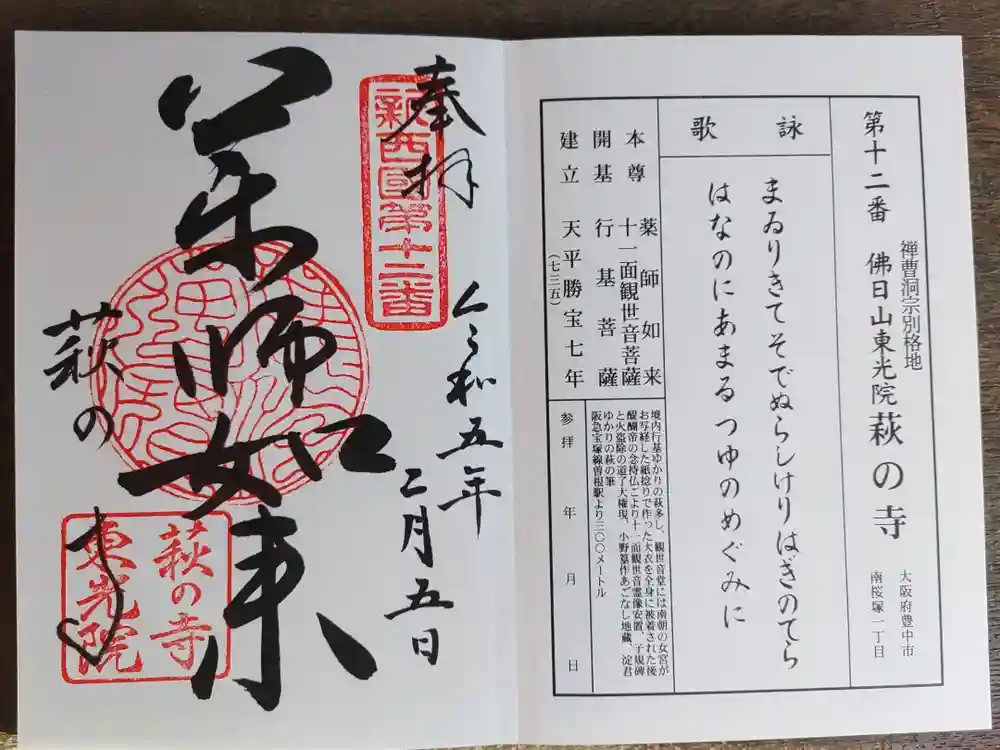 第十二番
禅曹洞宗別格地
佛日山東光院
萩の寺
大阪府豊中市
南桜塚一丁目
詠歌
まゐりきてそでぬらしけりはぎのてら
はなのにあまるつゆのめぐみに
本尊 薬師如来
十一面観世音菩薩
開基 行基菩薩
建立 天平勝宝七年
(七三五)
境内行基ゆかりの萩多し、観世音堂には南朝の女宮が
お写経した紙捻りで作った大衣を全身に被着された後
醍醐帝の念持仏こより十一面観世音霊像安置、子規碑
と火盗除の道了大権現、小野篁作あごなし地蔵、淀君
ゆかりの萩の筆
阪急宝塚線曽根駅より三〇〇メートル
参拝 年 月 日
奉拝
新西國第十二番
令和五年
二月五日
薬師如来
萩の寺
萩の寺
東光院